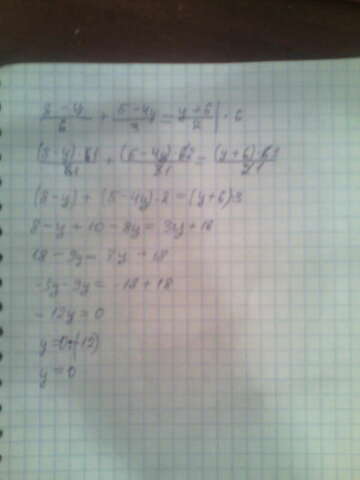 (8-y)/6 + (5-4y)/3 = (y+6)/2 | · 6
(8-y)·61/61 + (5-4y)·62/31 = (y+6)·63/21
(8-y) + (5-4y)·2=(y+6)3
8-y+10-8y= 3y+18
18-9y= 3y+18
-3y-9y= -18+18
-12y=0
y=0:(-12)
y=0